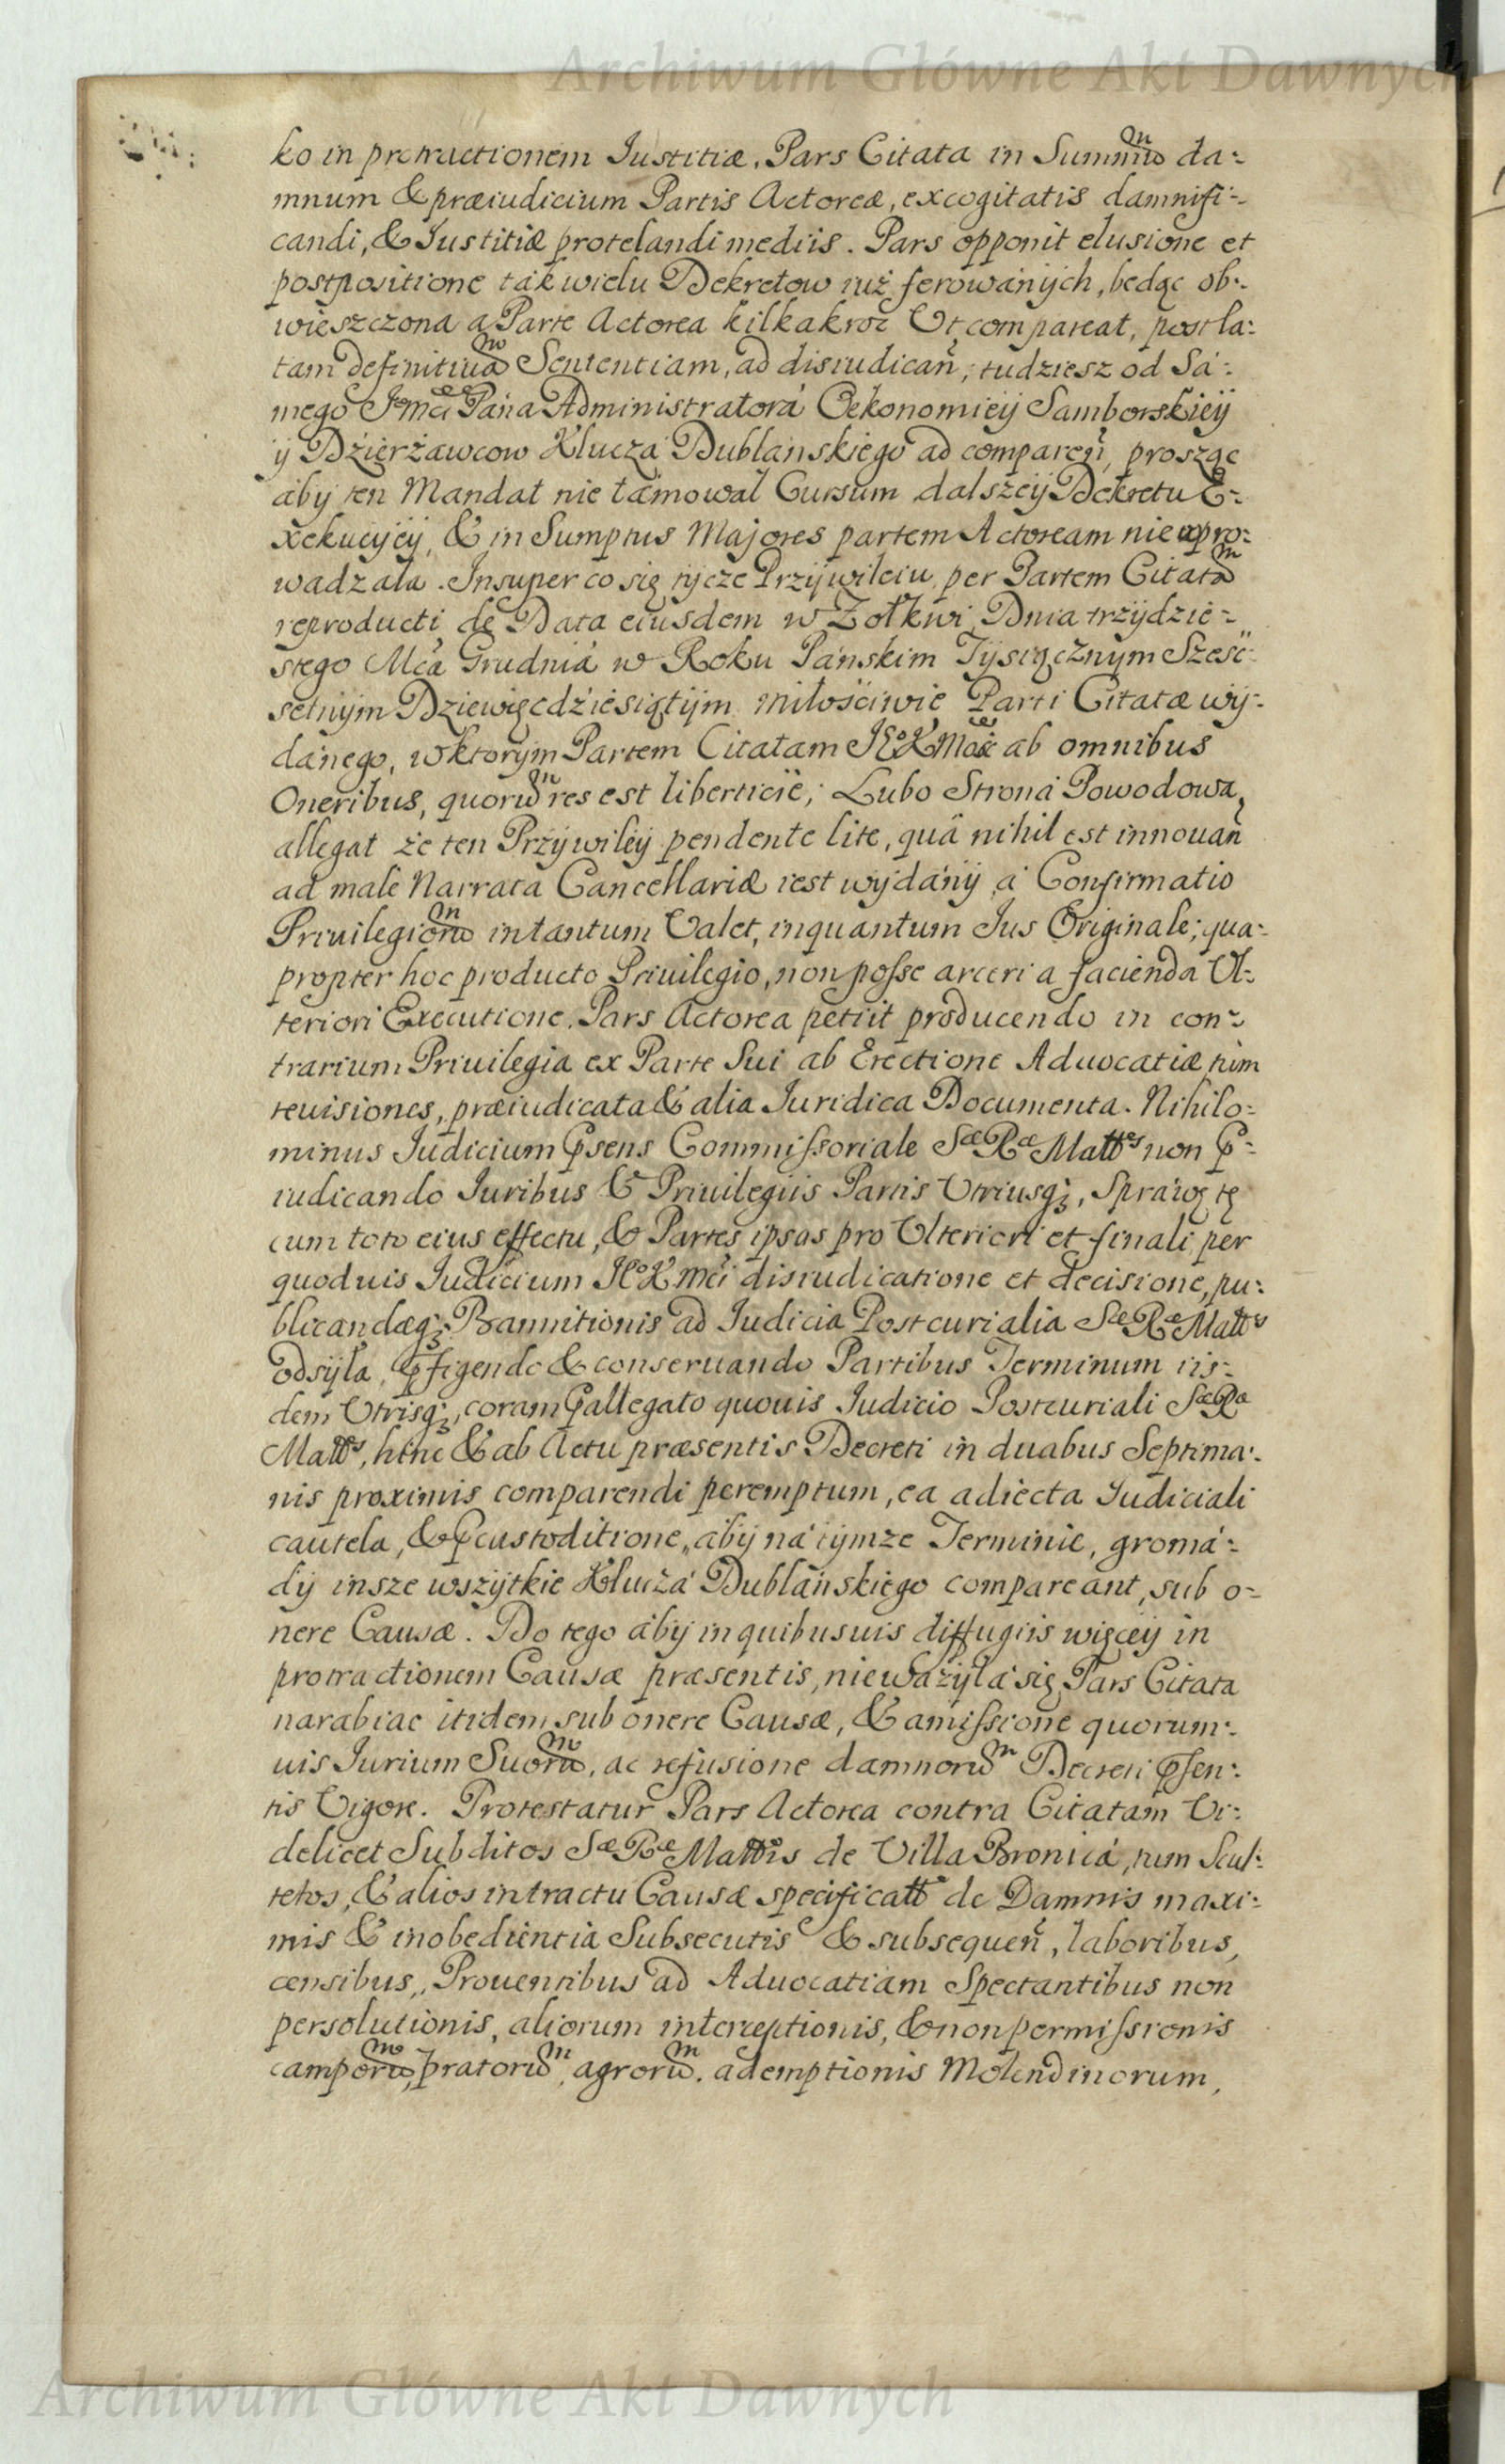 Archiwum Główne Akt Dawnych
ko in protractionem Justitiæ, Pars Citata in Summũ da:
mnum & præiudicium Partis Actoreæ, excogitatis damnifi:
candi, & Justitiæ protelandi mediis. Pars opponit elusione et
postpositione ták wielu Dekretow iuż ferowánych, będąc ob:
wieszczona a Parte Actorea kilkakroć Ut compareat, post la:
tam definitiuã Sententiam, ad disiudicañ, tudziesz od Sá:
mego Jomći Páná Administratorá Oekonomiey Samborskiey
ÿ Dzierżawcow Kluczá Dublánskiego ad compareñ, prosząc
áby ten Mandat nie támował Cursum dalszey Dekretu E:
xekucyey, & in Sumptus Majores partem Actoream nie wpro:
wadzáła. Insuper co się tycze Przywileiu, per Partem Citatã
reproducti de Data eiusdem w Żołkwi Dnia trzydzie:
stego Mcá Grudniá w Roku Pánskim Tysiącznym Sześć:
setnym Dziewięcdziesiątym miłościwie Parti Citatæ wy:
dánego, w ktorym Partem Citatam JKoKMość ab omnibus
Oneribus, quorũ res est libertüe; Lubo Stroná Powodowa,
allegat że ten Przywiley pendente lite, quâ nihil est innouañ
ad male Narrata Cancellariæ iest wydány á Confirmatio
Priuilegiorũ intantum Valet, inquantum Jus Originale; qua:
propter hoc producto Priuilegio, non posse arceri a facienda Ul:
teriori Executione. Pars Actorea petiit producendo in con:
trarium Priuilegia ex Parte Sui ab Erectione Aduocatiæ tum
reuisiones, præiudicata & alia Juridica Documenta. Nihilo:
minus Judicium Psens Commissoriale Sæ Ræ Mattis non P:
iudicando Juribus & Priuilegiis Partis Utriusq;, Spráwę tę
cum toto eius effectu, & Partes ipsas pro Ulteriori et finali per
quoduis Judicium JKoKMći disiudicatione et decisione, pu:
blicandæq; Bannitionis ad Judicia Postcurialia Sæ Ræ Mattis
odsyła, Pfigendo & conseruando Partibus Terminum iis:
dem Utrisq;, coram Pallegato quouis Judicio Postcuriali Sæ Ræ
Mattis, hinc & ab Actu præsentis Decreti in duabus Septima:
nis proximis comparendi peremptum, ea adiecta Judiciali
cautela, & Pcustoditione, áby ná tymże Terminie, gromá:
dy insze wszytkie Kluczá Dublánskiego compareant, sub o:
nere Causæ. Do tego áby in quibusuis diffugiis więcey in
protractionem Causæ præsentis, nieważyłá się Pars Citata
narabiac itidem sub onere Causæ, & amissione quorum:
uis Jurium Suorũ, ac refusione damnorũ Decreti Psen:
tis Vigore. Protestatur Pars Actorea contra Citatam Vi:
delicet Subditos Sæ Ræ Mattis de Villa Bronicá, tum Scul:
tetos, & alios in tractu Causæ specificatt de Damnis maxi:
mis & inobedientia Subsecutis & subsequeñ, laboribus,
censibus, Prouentibus ad Aduocatiam Spectantibus non
persolutionis, aliorum interceptionis, & non permissionis
camporũ, pratorũ, agrorũ. ademptionis Molendinorum,
Archiwum Główne Akt Dawnych